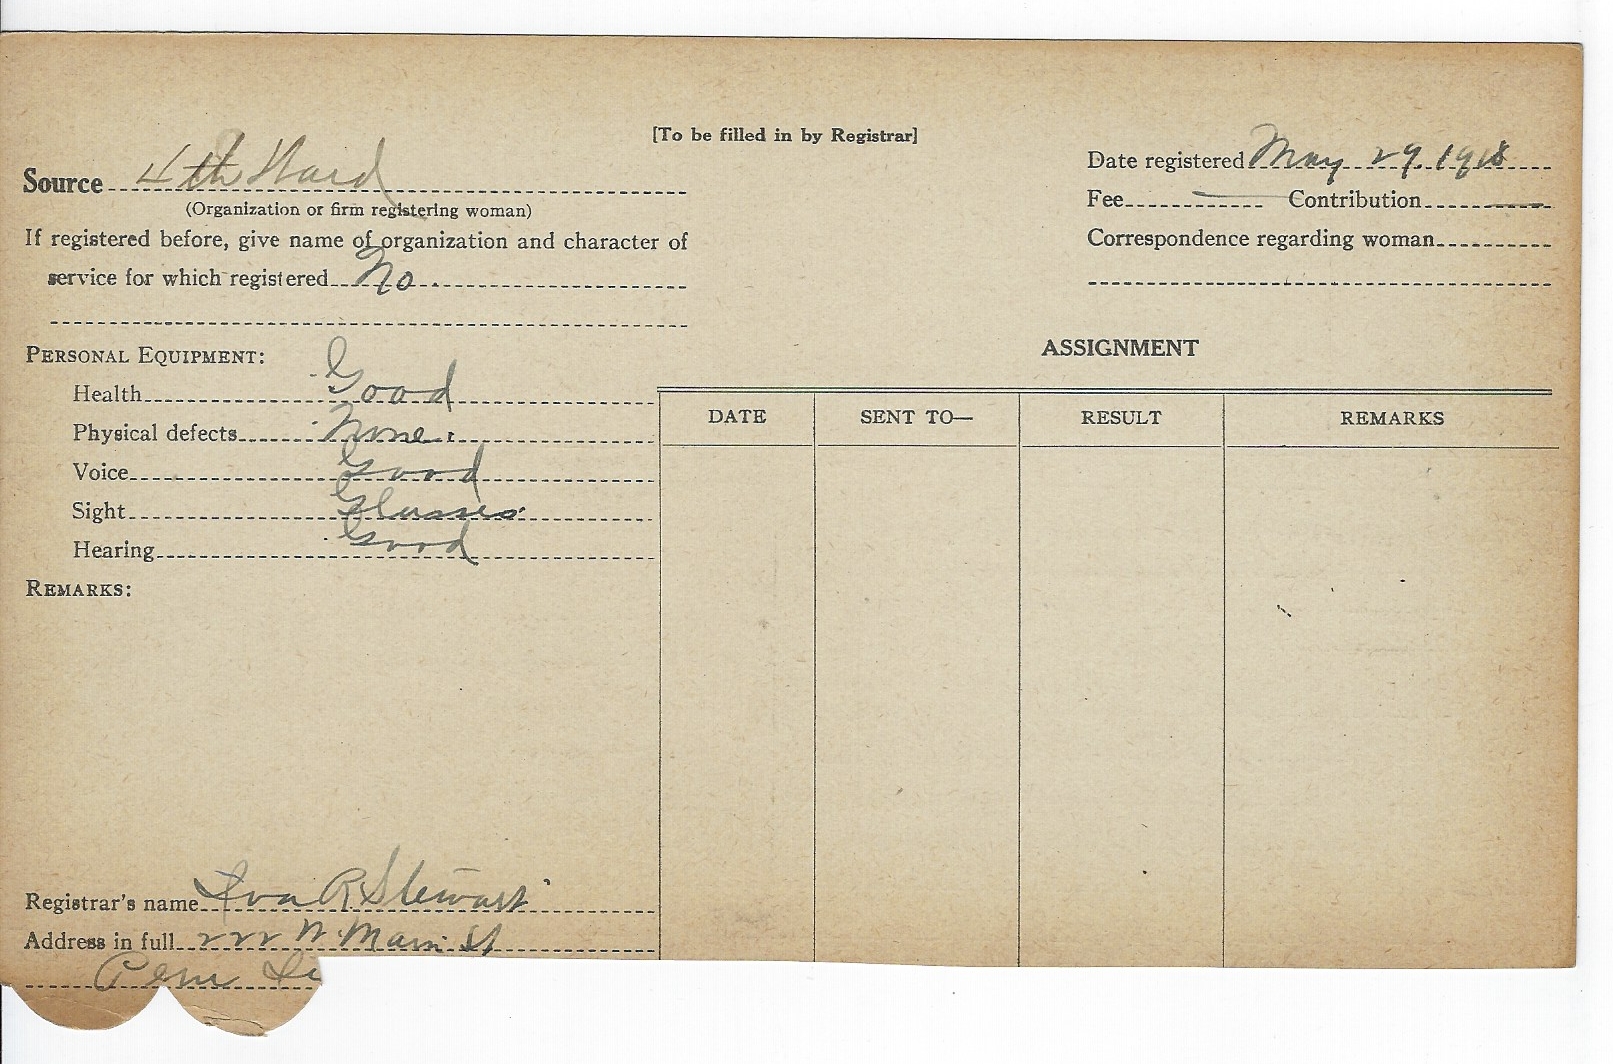 [To be filled in by Registrar]
Source 4th Ward
(Organization or firm registering woman)
If registered before, give name of organization and character of
service for which registered No.
Date registered May 29. 1918
Fee — Contribution —
Correspondence regarding woman
PERSONAL EQUIPMENT:
Health Good
Physical defects None.
Voice Good
Sight Glasses.
Hearing Good
REMARKS:
ASSIGNMENT
DATE SENT TO— RESULT REMARKS
Registrar's name Iva R Stewart
Address in full 222 N. Main St